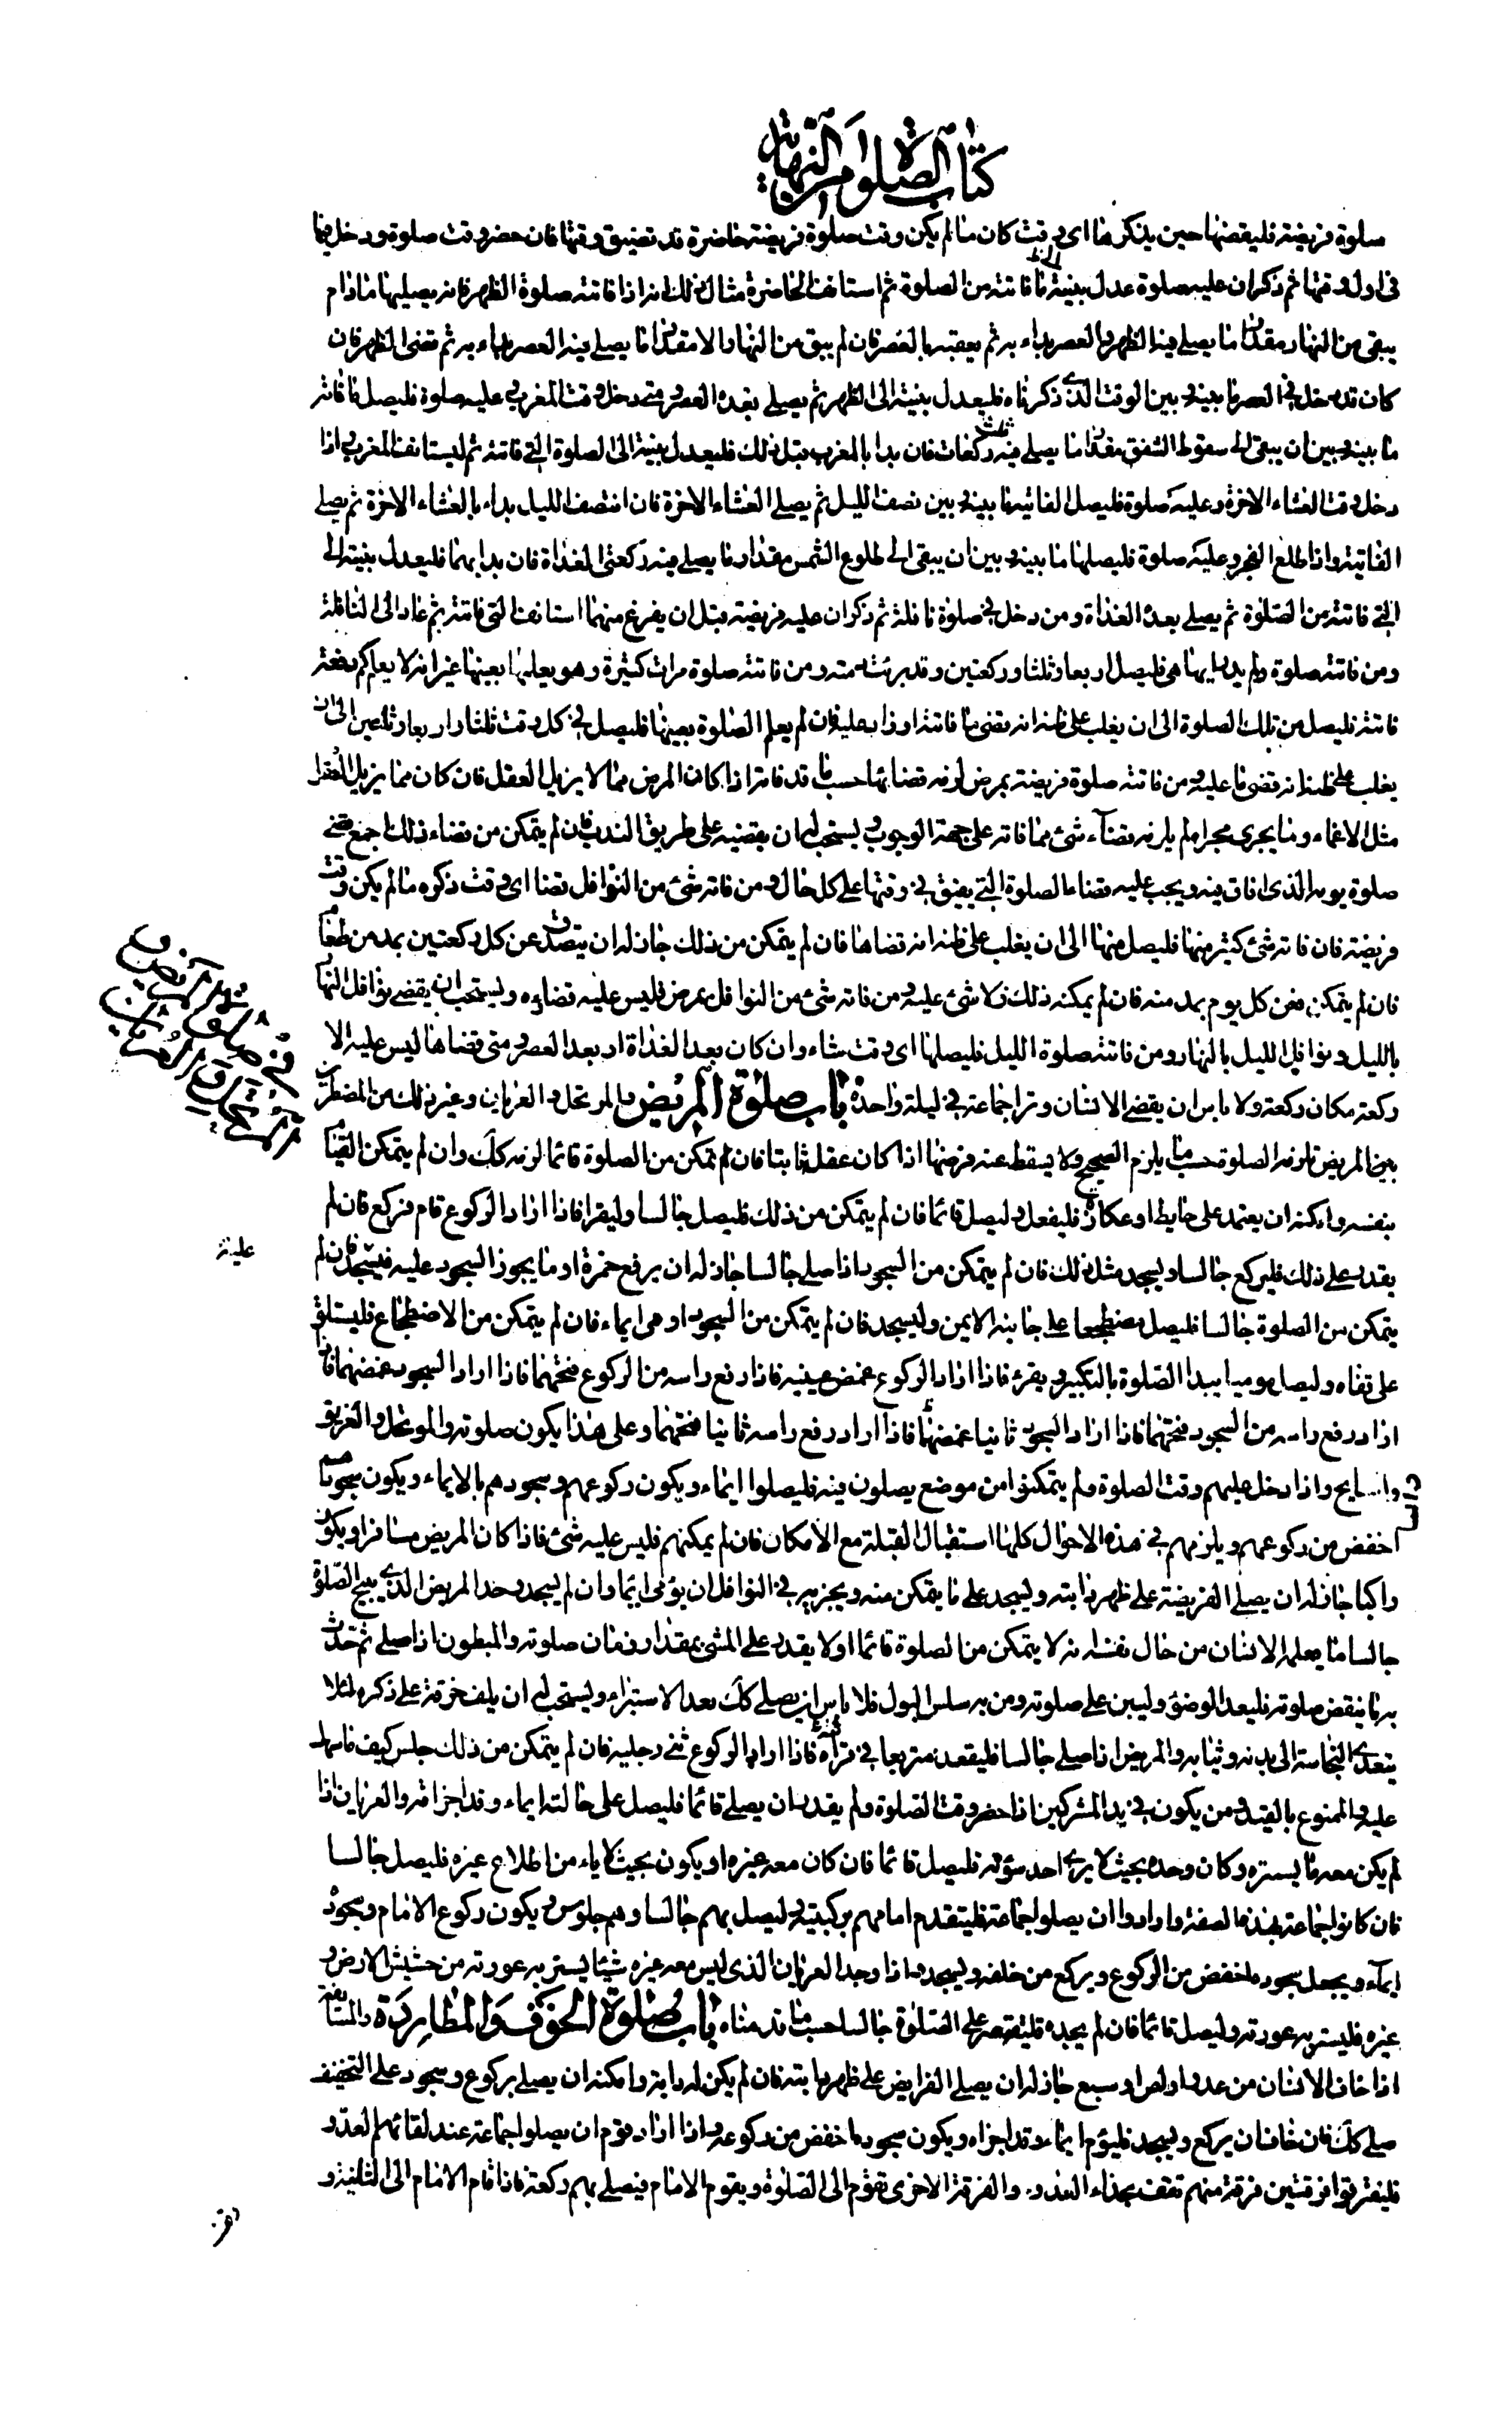 كتاب الصلوة من النهاية
صلوة فريضة فليقضها حين يذكرها اى وقت كان ما لم يكن وقت صلوة فريضة حاضرة قد تضيق وقتها فان حضر وقت صلوة ودخل فيها
فى اول وقتها ثم ذكر ان عليه صلوة عدل بنيته الى ما فاتته من الصلوة ثم استانف الحاضرة مثال ذلك انه اذا فاتته صلوة الظهر فانه يصليها ما دام
يبقى من النهار مقدار ما يصلى فيه الظهر والعصر يبداء به ثم يعقبه بالعصر فان لم يبق من النهار الا مقدار ما يصلى فيه العصر بداء به ثم قضى الظهر فان
كان قد دخل فى العصر ما بينه وبين الوقت الذى ذكرناه فليعدل بنيته الى الظهر ثم يصلى بعده العصر ومتى دخل وقت المغرب وعليه صلوة فليصل ما فاته
ما بينه وبين ان يبقى الى سقوط الشفق مقدار ما يصلى فيه ثلث ركعات فان بدا بالمغرب قبل ذلك فليعدل بنيته الى الصلوة التى فاتته ثم ليستانف المغرب اذا
دخل وقت العشاء الاخرة وعليه صلوة فليصل الفائتة ما بينه وبين نصف الليل ثم يصلى العشاء الاخرة فان انتصف الليل بداء بالعشاء الاخرة ثم يصلى
الفائتة واذا طلع الفجر وعليه صلوة فليصلها ما بينه وبين ان يبقى الى طلوع الشمس مقدار ما يصلى فيه ركعتى الغداة فان بدا بهما فليعدل بنيته الى
التى فاتته من الصلوة ثم يصلى بعده الغداة ومن دخل فى صلوة نافلة ثم ذكر ان عليه فريضة قبل ان يفرغ منهما استانف التى فاتته ثم عاد الى النافلة
ومن فاتته صلوة ولم يدر ايها هى فليصل اربعا وثلثا وركعتين وقد برئت ذمته ومن فاتته صلوة مرات كثيرة وهو يعلمها بعينها غير انه لا يعلم كم دفعة
فاتته فليصل من تلك الصلوة الى ان يغلب على ظنه انه قضى ما فاتته او زاد عليه فان لم يعلم الصلوة بعينها فليصل فى كل وقت ثلثا واربعا وركعتين الى ان
يغلب على ظنه انه قضى ما عليه ومن فاتته صلوة فريضة بمرض لزمه قضائها حسب ما قد فاته اذا كان المرض مما لا يزيل العقل فان كان مما يزيل العقل
مثل الاغماء وما يجرى مجراه لم يلزمه قضاء شئ مما فاته على جهة الوجوب ويستحب له ان يقضيه على طريق الندب فان لم يتمكن من قضاء ذلك اجمع قضى
صلوة يومه الذى افاق فيه ويجب عليه قضاء الصلوة التى يفيق فى وقتها على كل حال ومن فاته شئ من النوافل قضا اى وقت ذكره ما لم يكن وقت
فريضة فان فاته شئ كثير منها فليصل منها الى ان يغلب على ظنه انه قضاها فان لم يتمكن من ذلك جاز له ان يتصدق عن كل ركعتين بمد من طعام
فان لم يتمكن فعن كل يوم بمد منه فان لم يمكنه ذلك فلا شئ عليه ومن فاته شئ من النوافل بمرض فليس عليه قضاءه ويستحب ان يقضى نوافل النهار
بالليل ونوافل الليل بالنهار ومن فاتته صلوة الليل فليصلها اى وقت شاء وان كان بعد الغداة او بعد العصر ومتى قضاها ليس عليه الا
ركعة مكان ركعة ولا باس ان يقضى الانسان وترا جماعة فى ليلة واحدة باب صلوة المريض والموتحل والعريان وغير ذلك من المضطرين
المريض تلزمه الصلوة حسب ما يلزم الصحيح ولا يسقط عنه فرضها اذا كان عقله ثابتا فان تمكن من الصلوة قائما لزمه كك وان لم يتمكن القيام
بنفسه وامكنه ان يعتمد على حايط او عكاز فليفعل وليصل قائما فان لم يتمكن من ذلك فليصل جالسا وليقرا فاذا اراد الركوع قام فركع فان لم
يقدر على ذلك فليركع جالسا وليسجد مثل ذلك فان لم يتمكن من السجود اذا صلى جالسا جاز له ان يرفع خمرة او ما يجوز السجود عليه فيسجد فان لم
يتمكن من الصلوة جالسا فليصل مضطجعا على جانبه الايمن وليسجد فان لم يتمكن من السجود اومى ايماء فان لم يتمكن من الاضطجاع فليستلق
على قفاه وليصل موميا يبدا الصلوة بالتكبير ويقرء فاذا اراد الركوع غمض عينيه فاذا رفع راسه من الركوع فتحهما فاذا اراد السجود غمضهما فان
اذا رفع راسه من السجود فتحهما فاذا اراد السجود ثانيا غمضهما فاذا اراد رفع راسه ثانيا فتحهما وعلى هذا يكون صلوته والموتحل والغريق
والسابح واذا دخل عليهم وقت الصلوة ولم يتمكنوا من موضع يصلون فيه فليصلوا ايماء ويكون ركوعهم وسجودهم بالايماء ويكون سجودهم
اخفض من ركوعهم ويلزمهم فى هذه الاحوال كلها استقبال القبلة مع الامكان فان لم يمكنهم فليس عليه شئ فاذا كان المريض مسافرا ويكون
راكبا جاز له ان يصلى الفريضة على ظهر دابته وليسجد على ما يتمكن منه ويجزيه فى النوافل ان يؤمى ايماء وان لم يسجد وحد المريض الذى يبيح الصلوة
جالسا ما يعلمه الانسان من حال نفسه انه لا يتمكن من الصلوة قائما او لا يقدر على المشى بمقدار زمان صلوته والمبطون اذا صلى ثم حدث
به ما ينقض صلوته فليعد الوضؤ وليبن على صلوته ومن به سلس البول فلا باس ان يصلى كك بعد الاستبراء ويستحب له ان يلف خرقة على ذكره لئلا
يتعدى النجاسة الى بدنه وثيابه والمريض اذا صلى جالسا فليقعد متربعا فى قراءته فاذا اراد الركوع ثنى رجليه فان لم يتمكن من ذلك جلس كيف ما سهل
عليه والممنوع بالقيد ومن يكون فى يد المشركين اذا حضر وقت الصلوة ولم يقدر ان يصلى قائما فليصل على حالته ايماء وقد اجزاه والعريان اذا
لم يكن معه ما يستره وكان وحده بحيث لا يرى احد سؤته فليصل قائما فان كان معه غيره او يكون بحيث لا ياء من اطلاع غيره فليصل جالسا
فان كانوا جماعة بهذه الصفة وارادوا ان يصلوا جماعة فليتقدم امامهم بركبتيه وليصل بهم جالسا وهم جلوس ويكون ركوع الامام وسجوده
ايماء ويجعل سجوده اخفض من الركوع ويركع من خلفه ويسجد واذا وجد العريان الذى ليس معه غيره شيئا يستر به عورته من حشيش الارض و
غيره فليستر به عورته وليصل قائما فان لم يجده فليقتصر على الصلوة جالسا حسب ما قدمناه باب صلوة الخوف والمطاردة والمسايفة
اذا خاف الانسان من عدو او لص او سبع جاز له ان يصلى الفرايض على ظهر دابته فان لم يكن له دابة وامكنه ان يصلى بركوع وسجود على التخفيف
صلى كك فان خاف ان يركع ويسجد فليؤم ايماء وقد اجزاه ويكون سجوده اخفض من ركوعه واذا اراد قوم ان يصلوا جماعة عند لقائهم العدو
فليفترقوا فرقتين فرقة منهم تقف بحذاء العدو والفرقة الاخرى تقوم الى الصلوة ويقوم الامام فيصلى بهم ركعة فاذا قام الامام الى الثانية و